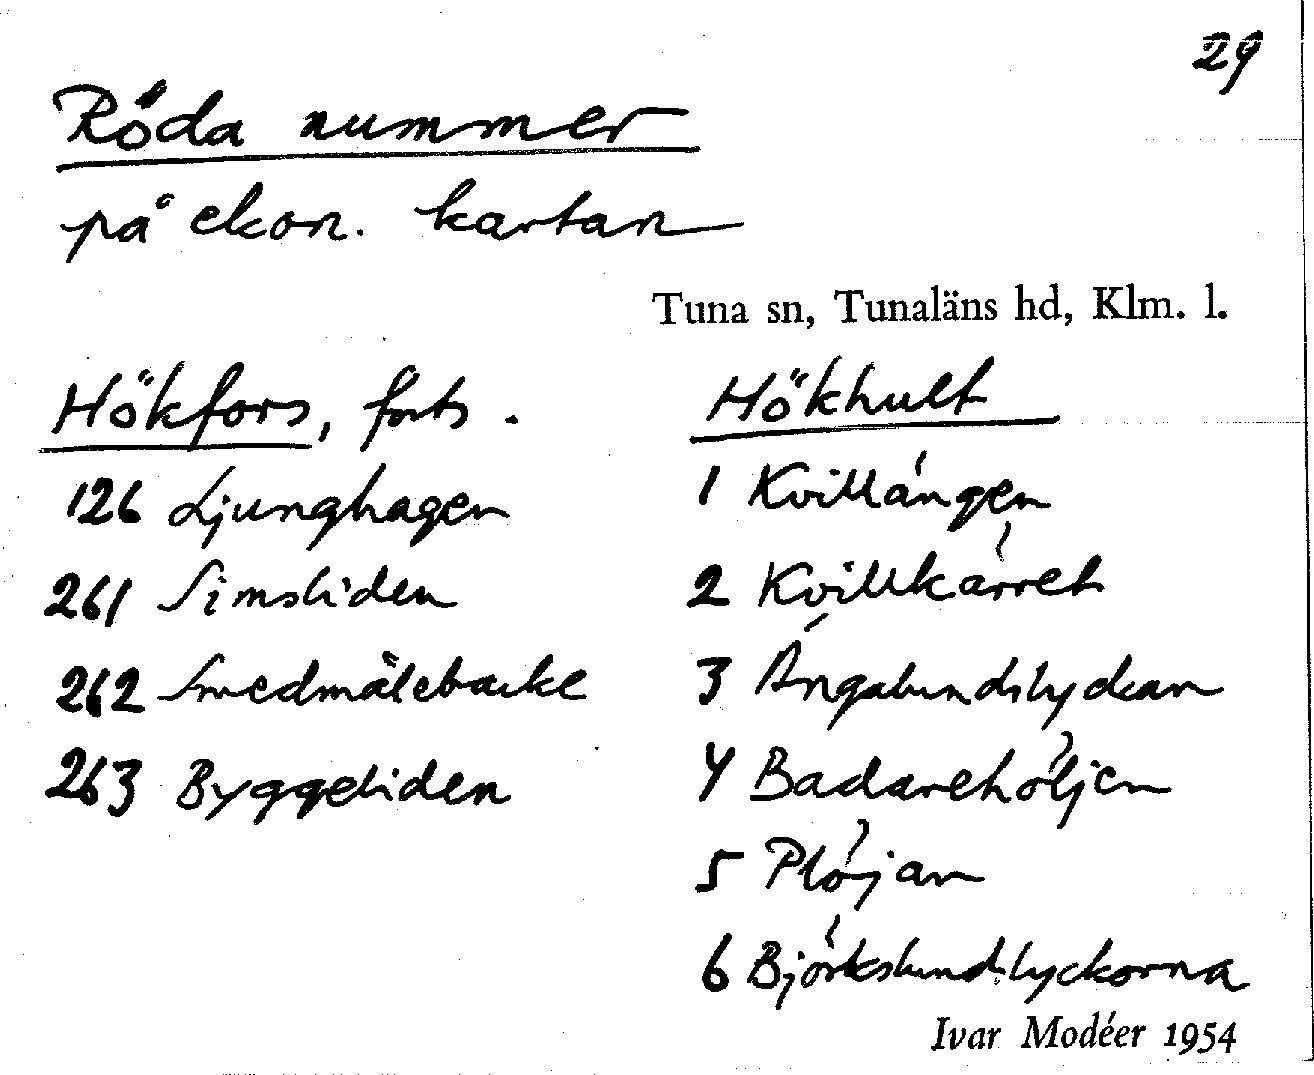 29
Röda nummer
på ekon. kartan
Tuna sn, Tunaläns hd, Klm. l.
Hökfors, forts.
126 Ljunghagen
261 Simsliden
262 Smedmålebacke
263 Byggeliden
Hökhult
1 Kvillängen
2 Kvillkärret
3 Ängalundslyckan
4 Badarehöljen
5 Plöjan
6 Björkslundslyckorna
Ivar Modéer 1954